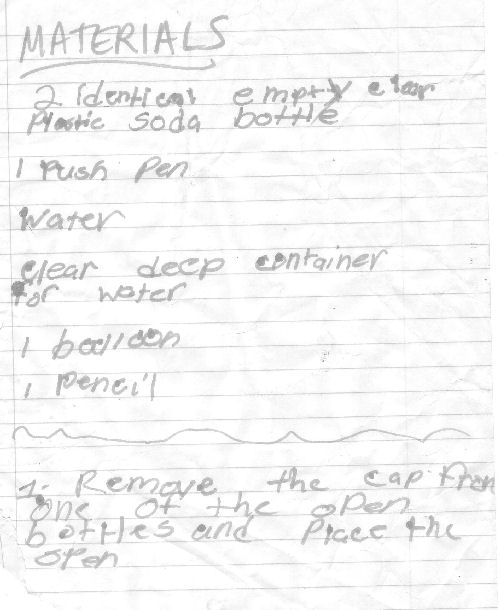 MATERIALS
2 identical empty clear
Plastic soda bottle
1 Push Pen
Water
clear deep container
for water
1 balloon
1 Pencil
1. Remove the cap from
one of the open
bottles and Place the
open